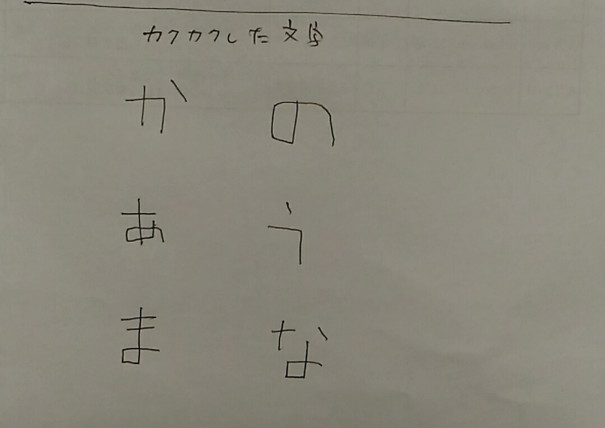 カクカクした文字
か の
あ う
ま な